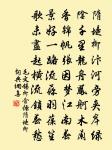 隋堤柳汴河旁夾岸綠
陰千里龍舟鳳舸木蘭
香錦帆張因夢江南春
景好一路流蘇羽葆笙
歌未盡起橫流鎖春愁
毛文錫柳含煙隋堤柳
句典